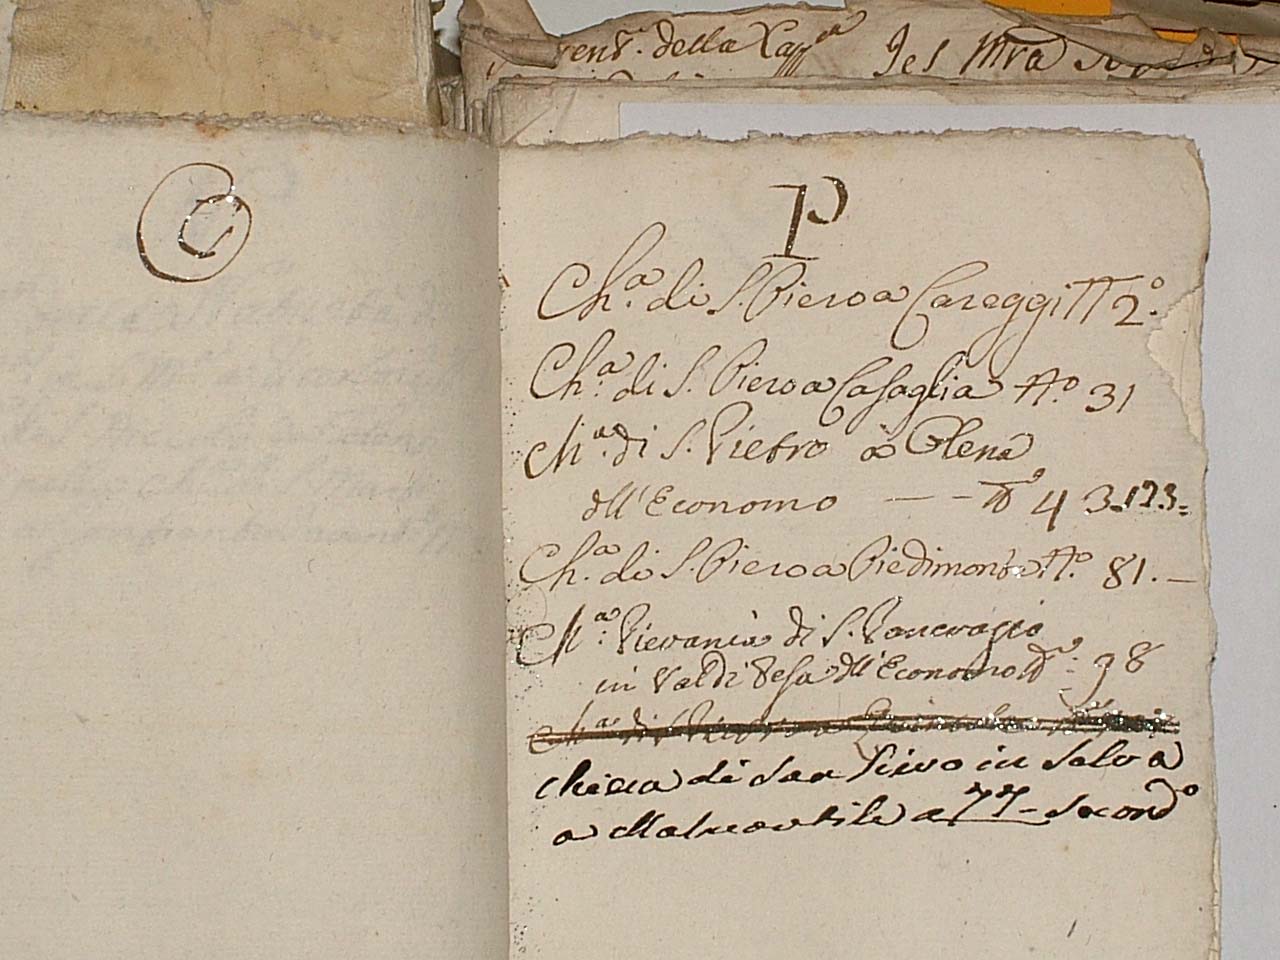 della
O
P
Ch.ª di S. Piero a Careggi N 2.º
Ch.ª di S. Piero a Casaglia N.º 31
Ch.ª di S. Pietro à Olena
dll'Economo — - N.º 43.123.
Ch.ª di S. Piero a Piedimonte N.º 81. —
Ch.ª Pievania di S. Pancrazio
in Val di Pesa dll'Economo N.º 98
Chiesa di San Piero in Selva
a Malmantile a 77 - Secondº